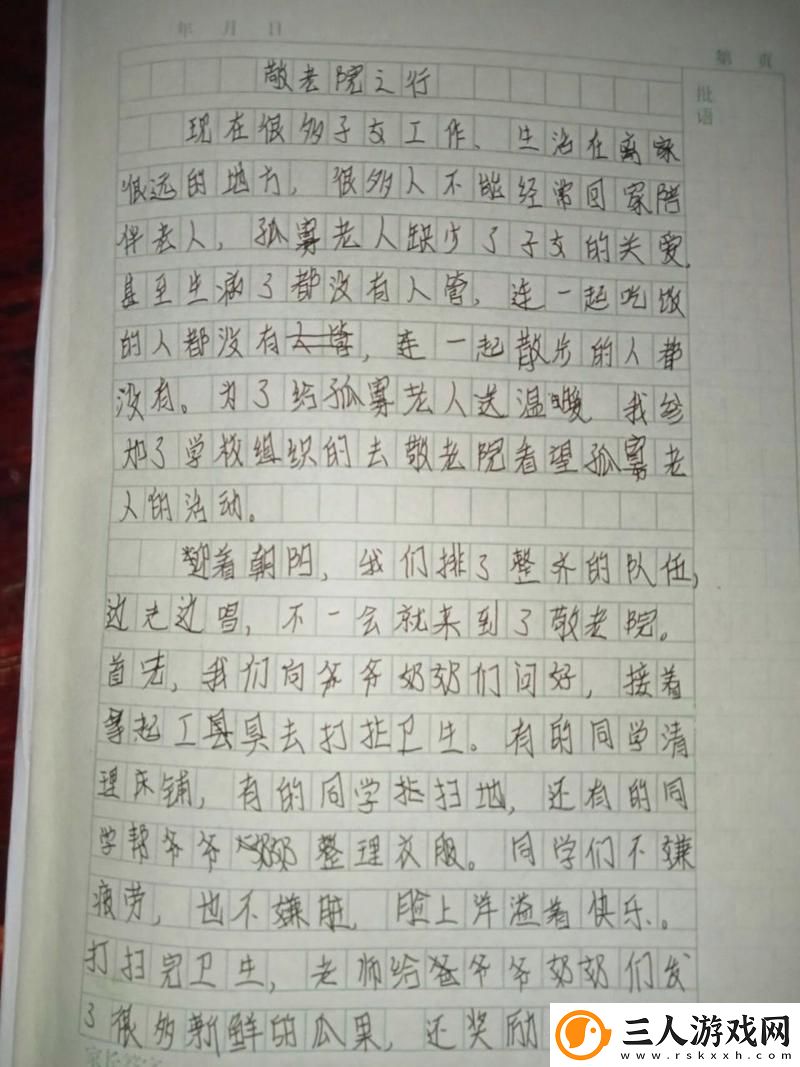 年 月 日
第 页
批语
敬老院之行
现在很多子女工作、生活在离家
很远的地方，很多人不能经常回家陪
伴老人，孤寡老人缺少了子女的关爱，
甚至生病了都没有人管，连一起吃饭
的人都没有人管，连一起散步的人都
没有。为了给孤寡老人送温暖 我参
加了学校组织的去敬老院看望孤寡老
人的活动。
迎着朝阳，我们排了整齐的队伍，
边走边唱，不一会就来到了敬老院。
首先，我们向爷爷奶奶们问好，接着
拿起工具具去打扫卫生。有的同学清
理床铺，有的同学扫地，还有的同
学帮爷爷奶奶整理衣服。同学们不嫌
疲劳，也不嫌脏，脸上洋溢着快乐。
打扫完卫生，老师给爷爷奶奶们发
了很多新鲜的瓜果，还奖励
家长签字
三人游戏网
www.rskxxh.com